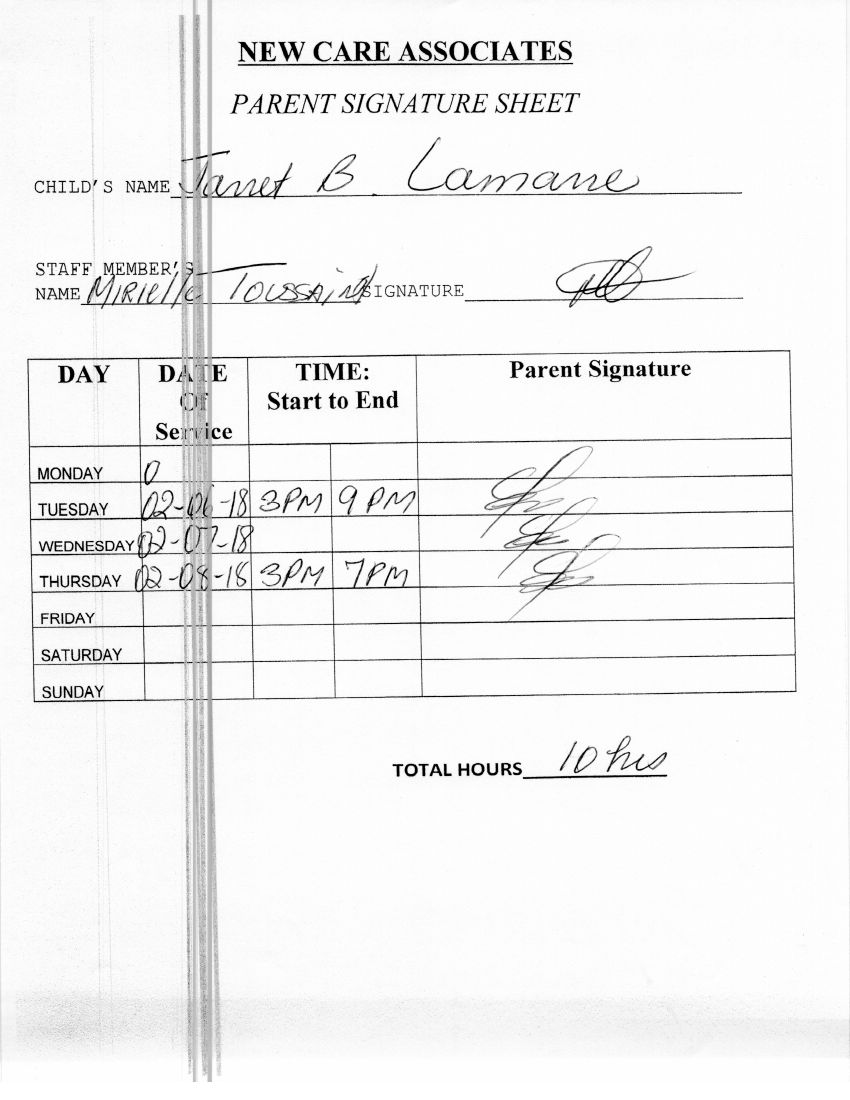 NEW CARE ASSOCIATES
PARENT SIGNATURE SHEET
CHILD'S NAME Jannet B. Lamarre
STAFF MEMBER'S
NAME Mirielle Toussaint SIGNATURE
DAY DATE Of Service TIME: Start to End Parent Signature
MONDAY 0
TUESDAY 02-06-18 3PM 9PM
WEDNESDAY 02-07-18
THURSDAY 02-08-18 3PM 7PM
FRIDAY
SATURDAY
SUNDAY
TOTAL HOURS 10 hrs